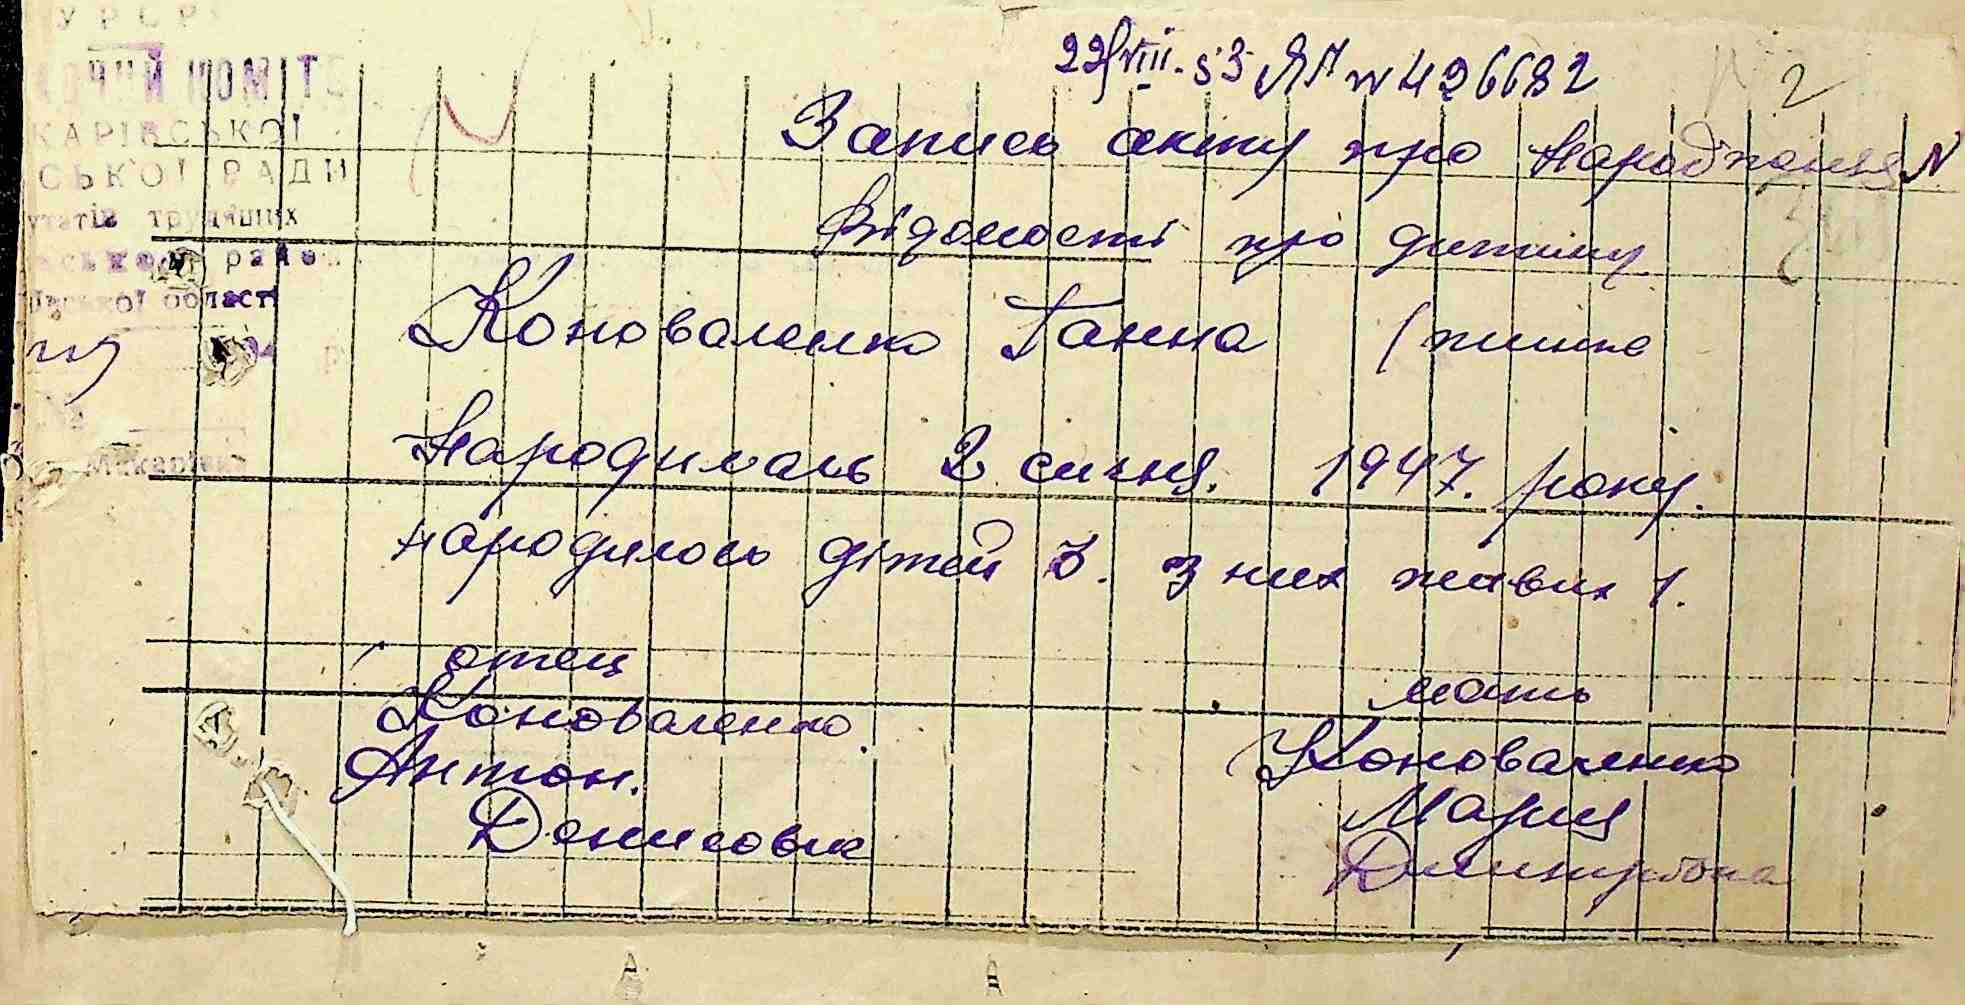 УРСР
КОМІТЕ
КАРІВСЬКОЇ
СЬКОЇ РАДИ
утатів трудящих
ського райо
ської області
194 р
№
Макарівка
22/VIII-53 ЯП № 426682
2
Запись акту про народженя N
Відомості про дитину
Коноваленко Ганна (жинка
Народилась 2 сичня. 1947. року.
народилось дітей 3. з них живих 1.
отец
Коноваленко.
Антон.
Денисовик
мать
Коноваленко
Мария
Димитровна